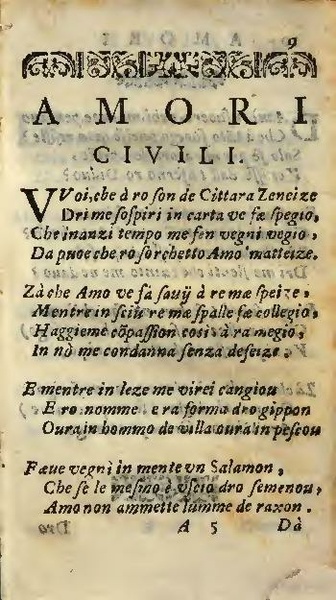 9
AMORI
CIVILI.
VVoi, che à ro son de Cittara Zeneize
Dri me sospiri in carta ve fæ spegio,
Che inanzi tempo me fen vegni vegio,
Da puoe che ro sorchetto Amo' matteize.
Zà che Amo ve fà sauÿ à re mæ speize,
Mentre in sciu re mæ spalle fæ collegio,
Haggieme cõpassion cosi à ra megio,
In nò me condanna senza defeize.
E mentre in leze me virei cangiou
E ro nomme e ra forma dro gippon
Oura in hommo de villa oura in pescou
Fæue vegni in mente vn Salamon,
Che se le mesmo è vscio dro semenou,
Amo non ammette lumme de raxon.
A 5 Dà